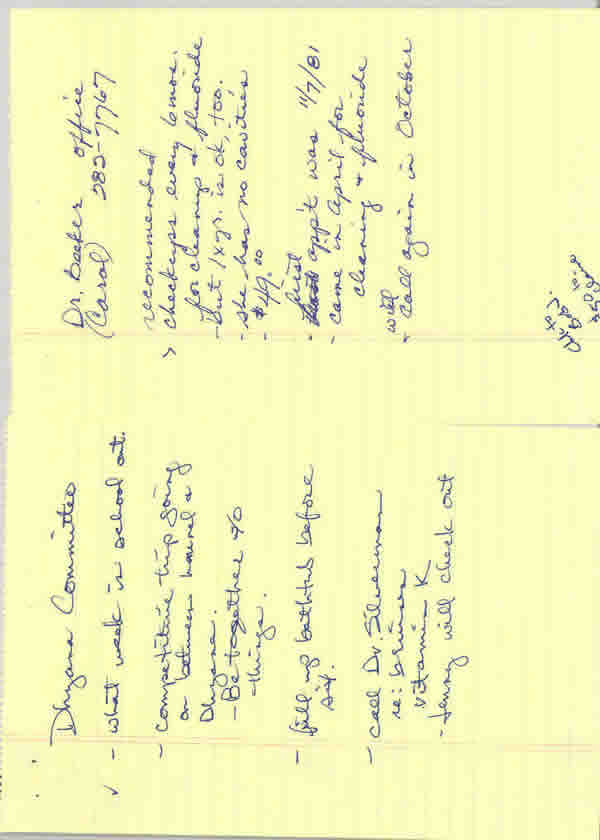 Dhyana Committee
✓ - what week is school out.
- Competitive trip going
on between Laurel &
Dhyana.
- Be together 40
things.
- fill up bathtub before
six.
- call Dr. Silverman
re: bruises
vitamin K
- Jenny will check out
Dr. Becker office
(Carol) 283-7767
recommended
> checkups every 6 mos.
for cleaning & fluoride
- but 1 x yr. is ok, too.
- she has no cavities
- $49.00
- first appt was 11/7/81
- came in April for
cleaning & fluoride
will
- call again in October